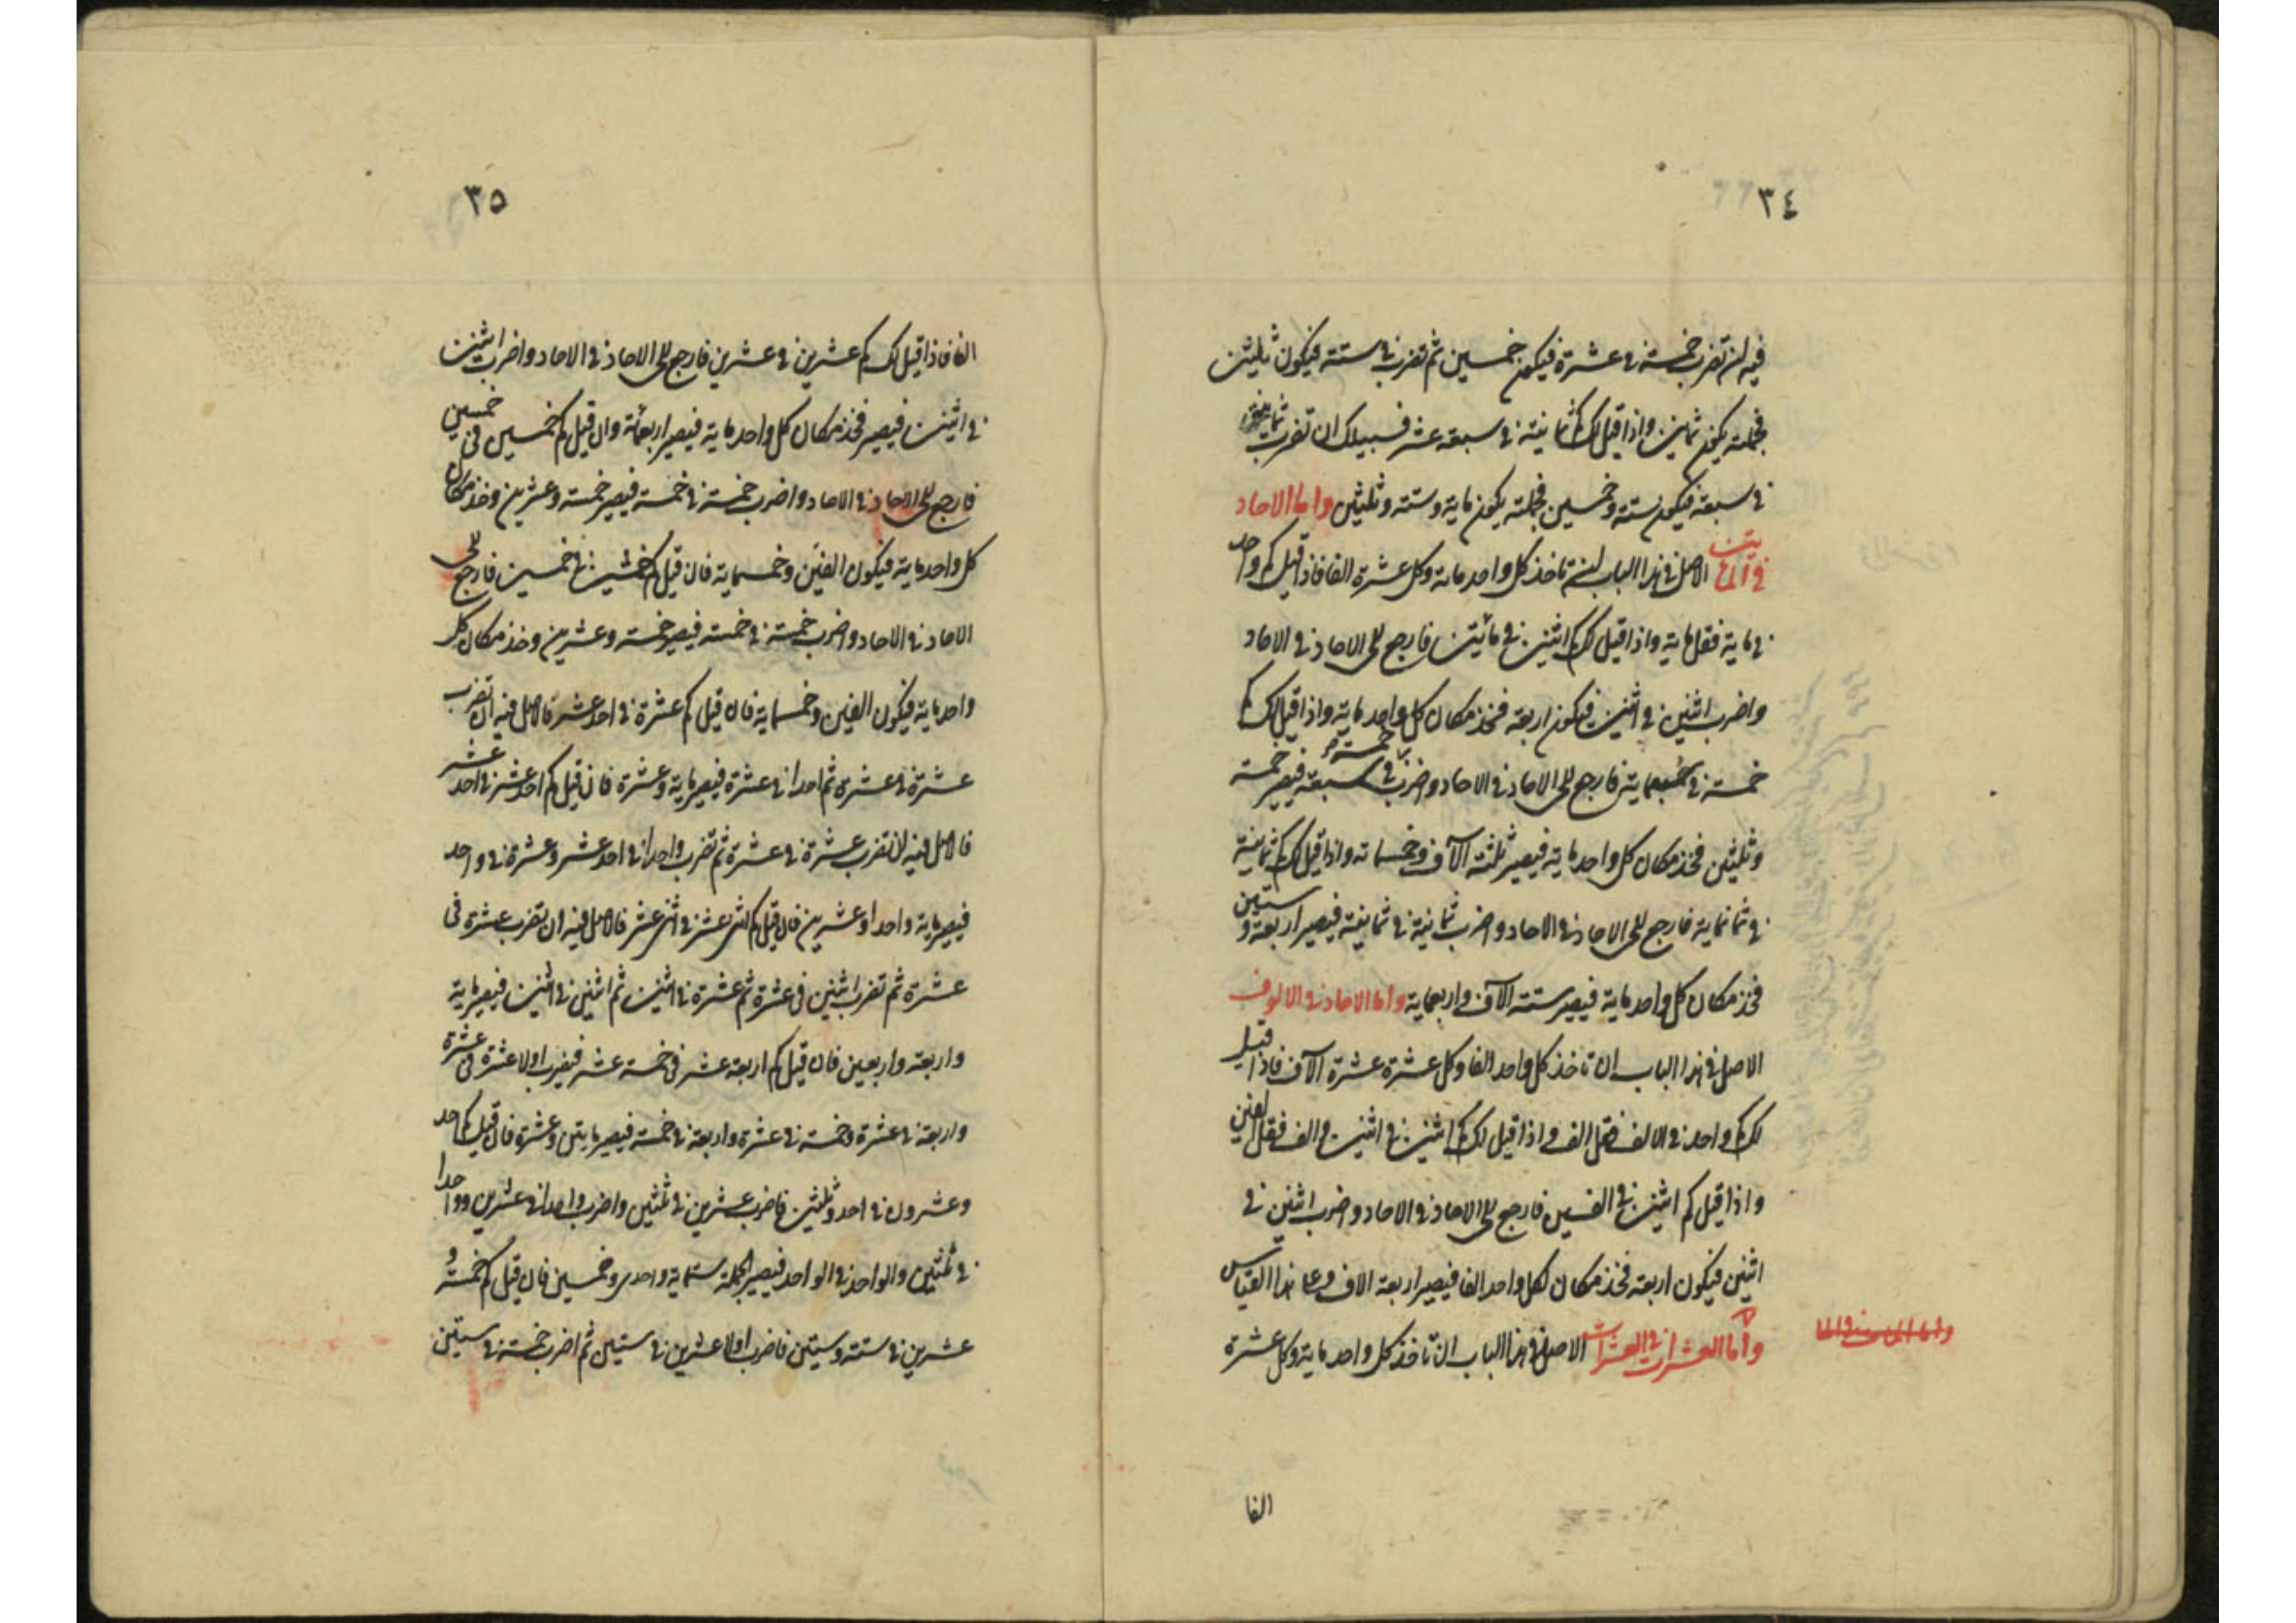 ٣٤
فيه ان تضرب خمسة في عشرة فيكون خمسين ثم تضرب في ستة فيكون ثلثين
فجملته يكون ثمانين واذا قيل لك كم ثمانية في سبعة عشر فسبيلك ان تضرب ثمانية
في سبعة فيكون ستة وخمسين فجملته يكون ماية وستة وثلثين واما الاحاد
في المايت الاصل في هذا الباب ان تاخذ كل واحد ماية وكل عشرة الفا فاذا قيل كم واحد
في ماية فقل ماية واذا قيل لك كم اثنين في مائتين فارجع الى الاحاد في الاحاد
واضرب اثنين في اثنين فيكون اربعة فخذ مكان كل واحد ماية واذا قيل لك كم
خمسة في سبعماية فارجع الى الاحاد في الاحاد واضرب خمسة في سبعة فيصير خمسة
وثلثين فخذ مكان كل واحد ماية فيصير ثلثة الآف وخمسماية واذا قيل لك كم ثمانية
في ثمانماية فارجع الى الاحاد في الاحاد واضرب ثمانية في ثمانية فيصير اربعة و ستين
فخذ مكان كل واحد ماية فيصير ستة الآف واربعماية واما الاحاد في الالوف
الاصل في هذا الباب ان تاخذ كل واحد الفا وكل عشرة عشرة الآف فاذا قيل
لك كم واحد في الالف فقل الف واذا قيل لك كم اثنين في اثنين والف فقل الفين
واذا قيل كم اثنين في الفين فارجع الى الاحاد في الاحاد واضرب اثنين في
اثنين فيكون اربعة فخذ مكان لكل واحد الفا فيصير اربعة الاف وعلى هذا القياس
واما العشرات في العشرات الاصل في هذا الباب ان تاخذ كل واحد ماية وكل عشرة
الفا
٣٥
الفا فاذا قيل لك كم عشرين في عشرين فارجع الى الاحاد في الاحاد واضرب اثنين
في اثنين فيصير فخذ مكان كل واحد ماية فيصير اربعمائة وان قيل كم خمسين في خمسين
فارجع الى الاحاد في الاحاد واضرب خمسة في خمسة فيصير خمسة وعشرين وخذ مكان
كل واحد ماية فيكون الفين وخمسماية فان قيل كم خمسين في خمسين فارجع الى
الاحاد في الاحاد واضرب خمسة في خمسة فيصير خمسة وعشرين وخذ مكان كل
واحد ماية فيكون الفين وخمسماية فان قيل كم عشرة في احد عشر فالاصل فيه ان تضرب
عشرة في عشرة ثم احدا في عشرة فيصير ماية وعشرة فان قيل كم احد عشر في احد عشر
فالاصل فيه ان تضرب عشرة في عشرة ثم تضرب واحدا في احد عشر وعشرة في واحد
فيصير ماية واحدا وعشرين فان قيل كم اثنى عشر في اثنى عشر فالاصل فيه ان تضرب عشرة في
عشرة ثم تضرب اثنين في عشرة ثم عشرة في اثنين ثم اثنين في اثنين فيصير ماية
واربعة واربعين فان قيل كم اربعة عشر في خمسة عشر فيضرب اولا عشرة في عشرة
واربعة في عشرة وخمسة في عشرة واربعة في خمسة فيصير مايتين وعشرة فان قيل كم احد
وعشرون في احد وثلثين فاضرب عشرين في ثلثين واضرب واحدا في عشرين وواحدا
في ثلثين والواحد في الواحد فيصير الجملة ستماية واحدى وخمسين فان قيل كم خمسة و
عشرين في ستة وستين فاضرب اولا عشرين في ستين ثم اضرب خمسة في ستين